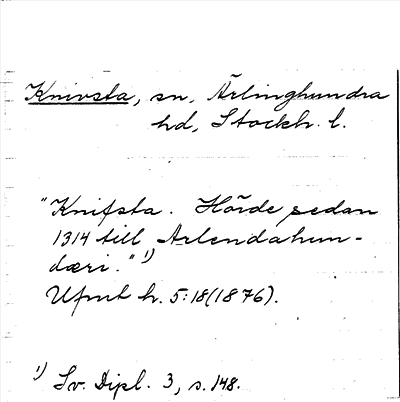 Knivsta, sn, Ärlinghundra
hd, Stockh. l.
"Knifsta. Hörde sedan
1314 till Arlendahun-
dæri." 1)
Ufmt h. 5:18 (1876).
1) Sv. Dipl. 3, s. 148.